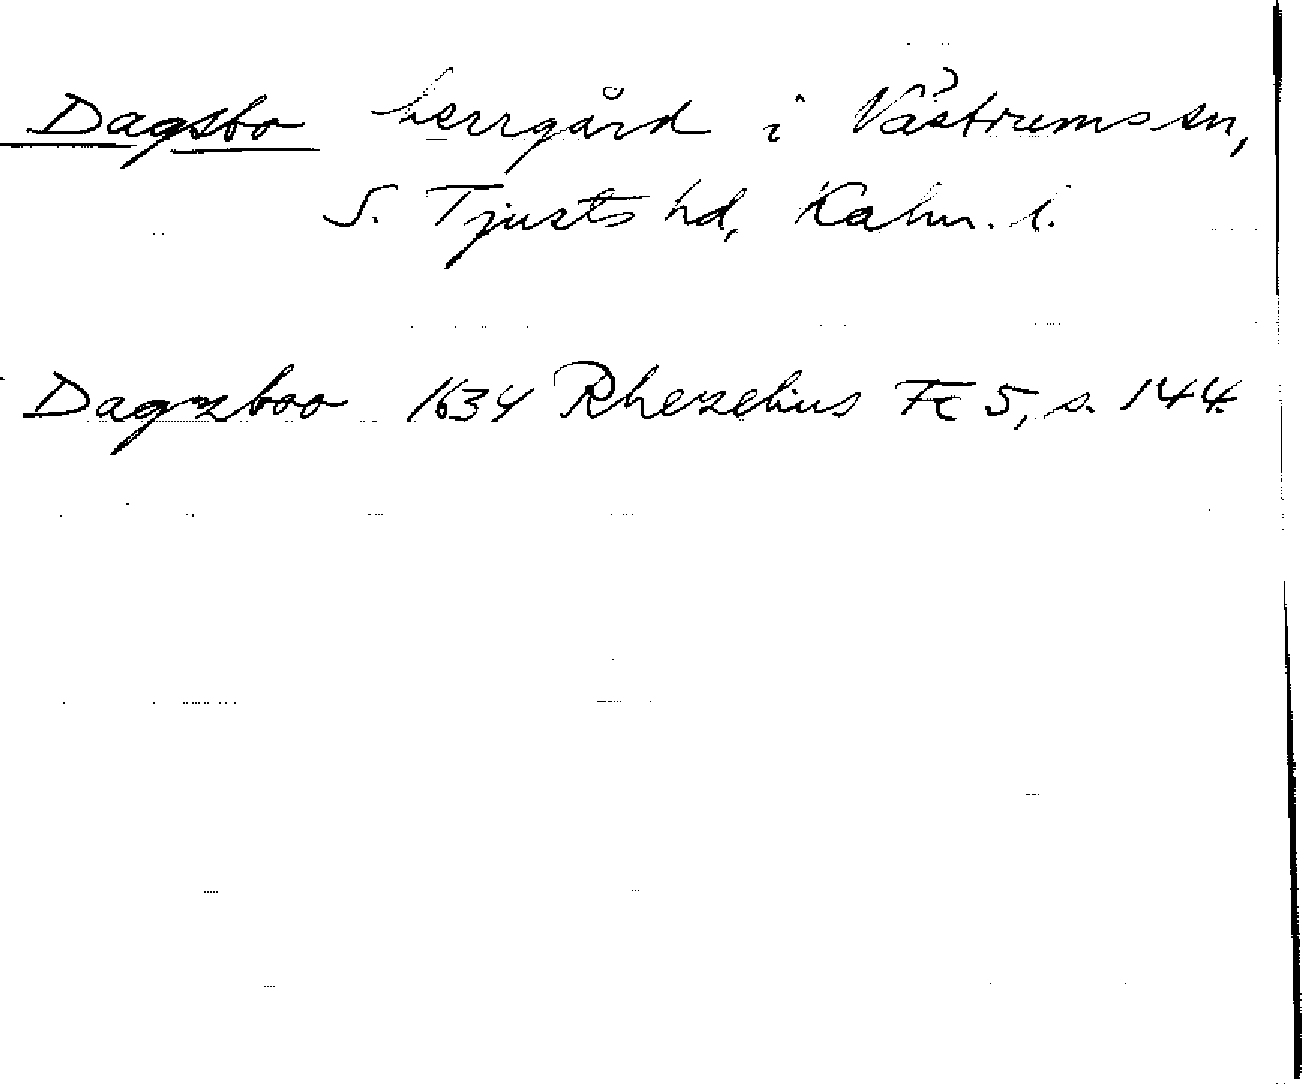 Dagsbo herrgård i Västrums sn,
S. Tjusts hd, Kalm. l.
Dagzboo 1634 Rhezelius Fc 5, s. 144.